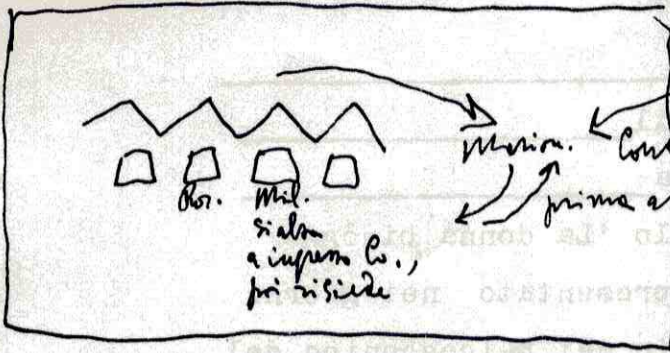 Ros.
Mil.
si alza
a ingresso Co.,
poi risiede
Marion.
prima a